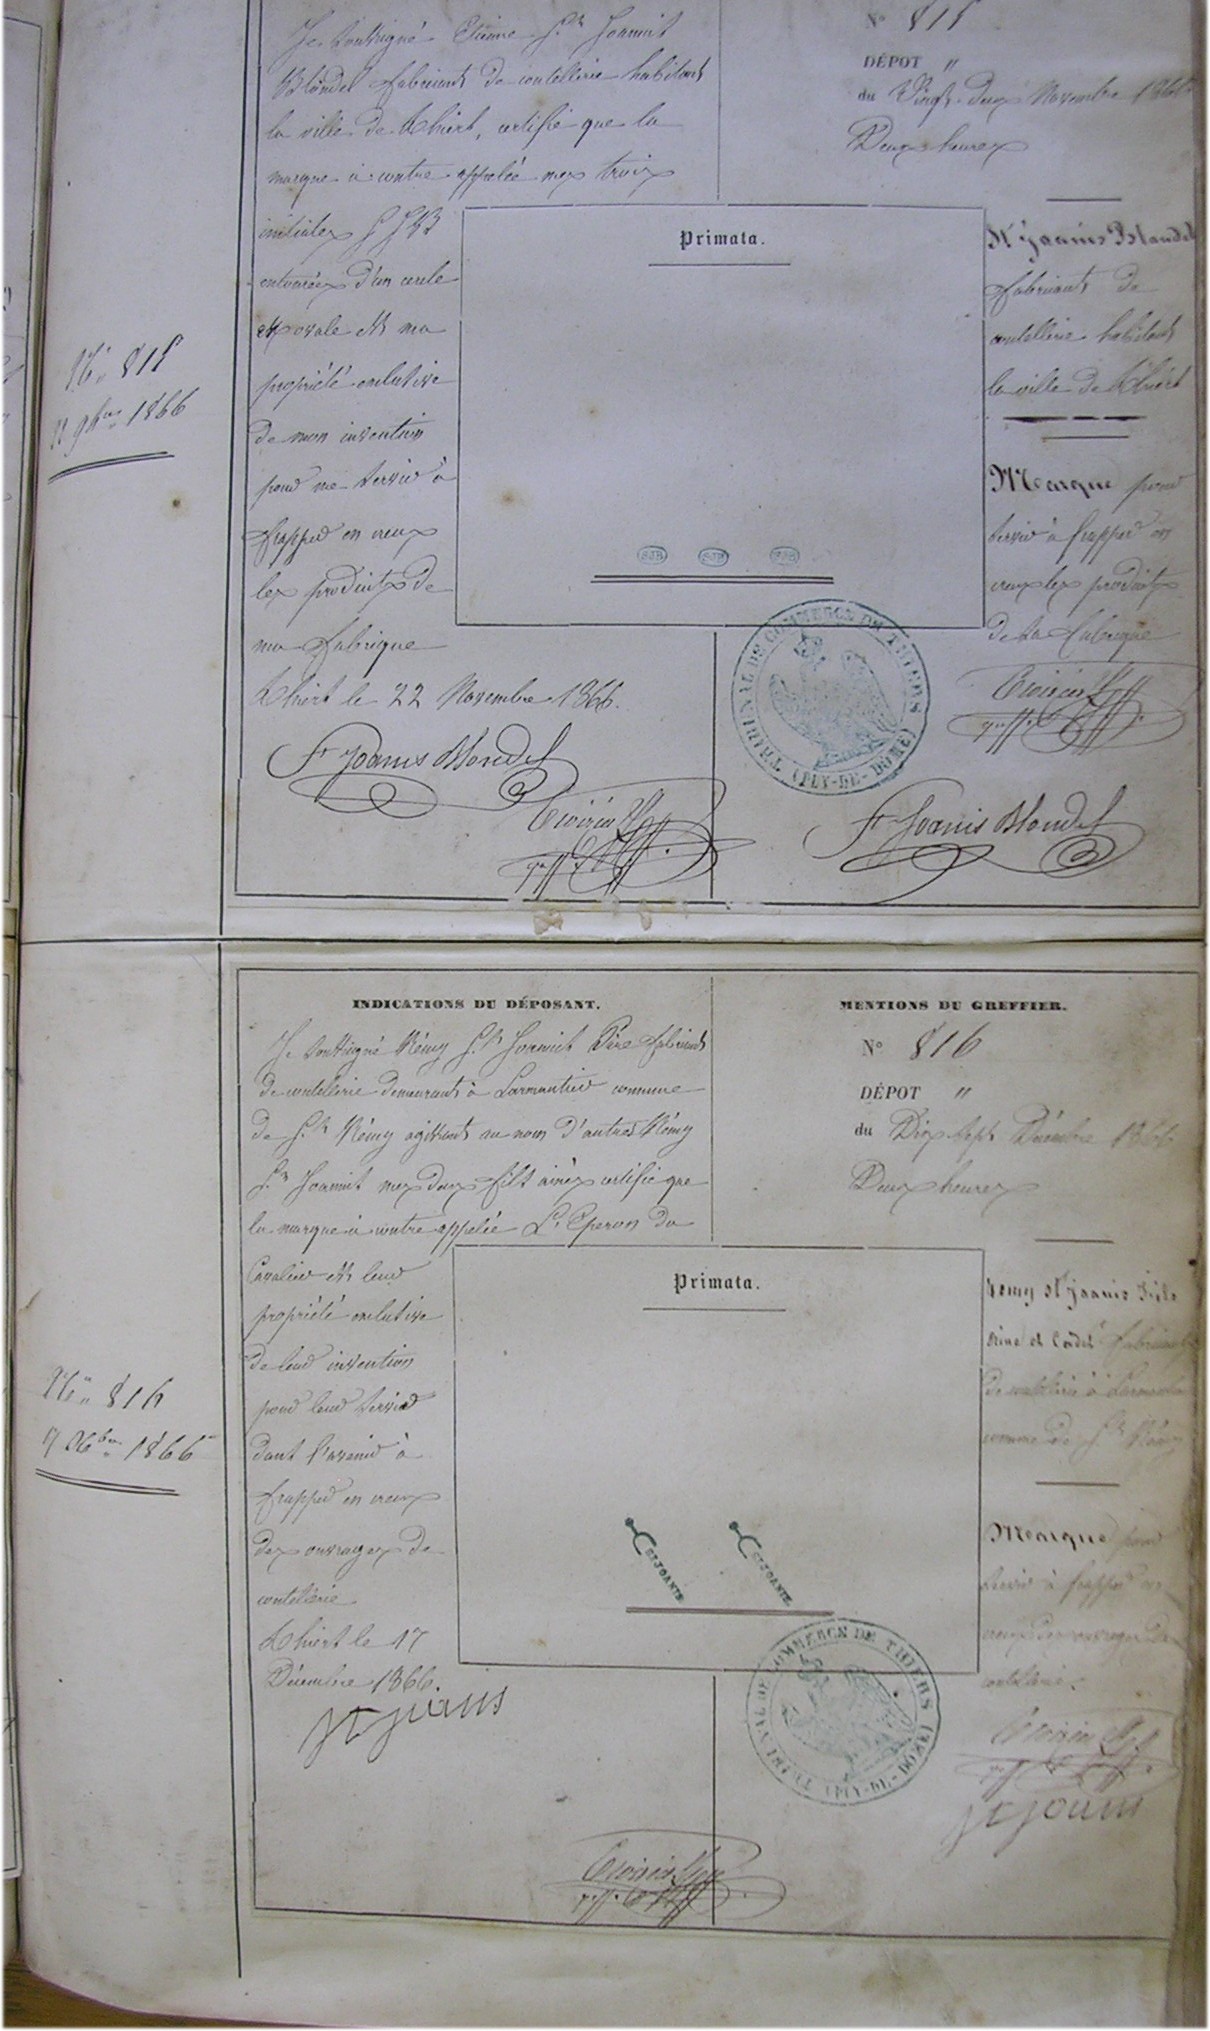 N° 815
Je soussigné Etienne St Joannis
Blondel fabricant de coutellerie habitant
la ville de Thiers, certifie que la
marque ci contre appelée mes trois
initiales S J B
entourées d'un cercle
ovale est ma
propriété exclusive
de mon invention
pour me servir à
frapper en creux
les produits de
ma fabrique
Thiers le 22 Novembre 1866.
St Joanis Blondel
greff.
DÉPOT "
du Vingt-deux Novembre 1866
Deux heures
St Joanis Blondel
fabricant de
coutellerie habitant
la ville de Thiers
Marque pour
servir à frapper en
creux les produits
de sa fabrique
greff.
St Joanis Blondel
Primata.
SJB SJB SJB
TRIBUNAL DE COMMERCE DE THIERS (PUY-DE-DOME)
N° 815
22 9bre 1866
INDICATIONS DU DÉPOSANT.
Je soussigné Rémy St Joannis Père fabricant
de coutellerie demeurant à Larmantier commune
de St Rémy agissant au nom d'autres Rémy
St Joannis mes deux fils ainés certifie que
la marque ci contre appelée L'Eperon du
Cavalier est leur
propriété exclusive
de leur invention
pour leur servir
dans l'avenir à
frapper en creux
des ouvrages de
coutellerie
Thiers le 17
Décembre 1866.
St joanis
greff.
MENTIONS DU GREFFIER.
N° 816
DÉPOT "
du Dix sept Décembre 1866
Deux heures
Remy St joanis Fils
Aine et Cadet fabricants
de coutellerie à Larmantier
commune de St Rémy
Marque pour
servir à frapper en
creux des ouvrages de
coutellerie.
St joanis
Primata.
ST JOANIS ST JOANIS
TRIBUNAL DE COMMERCE DE THIERS (PUY-DE-DOME)
N° 816
17 Xbre 1866